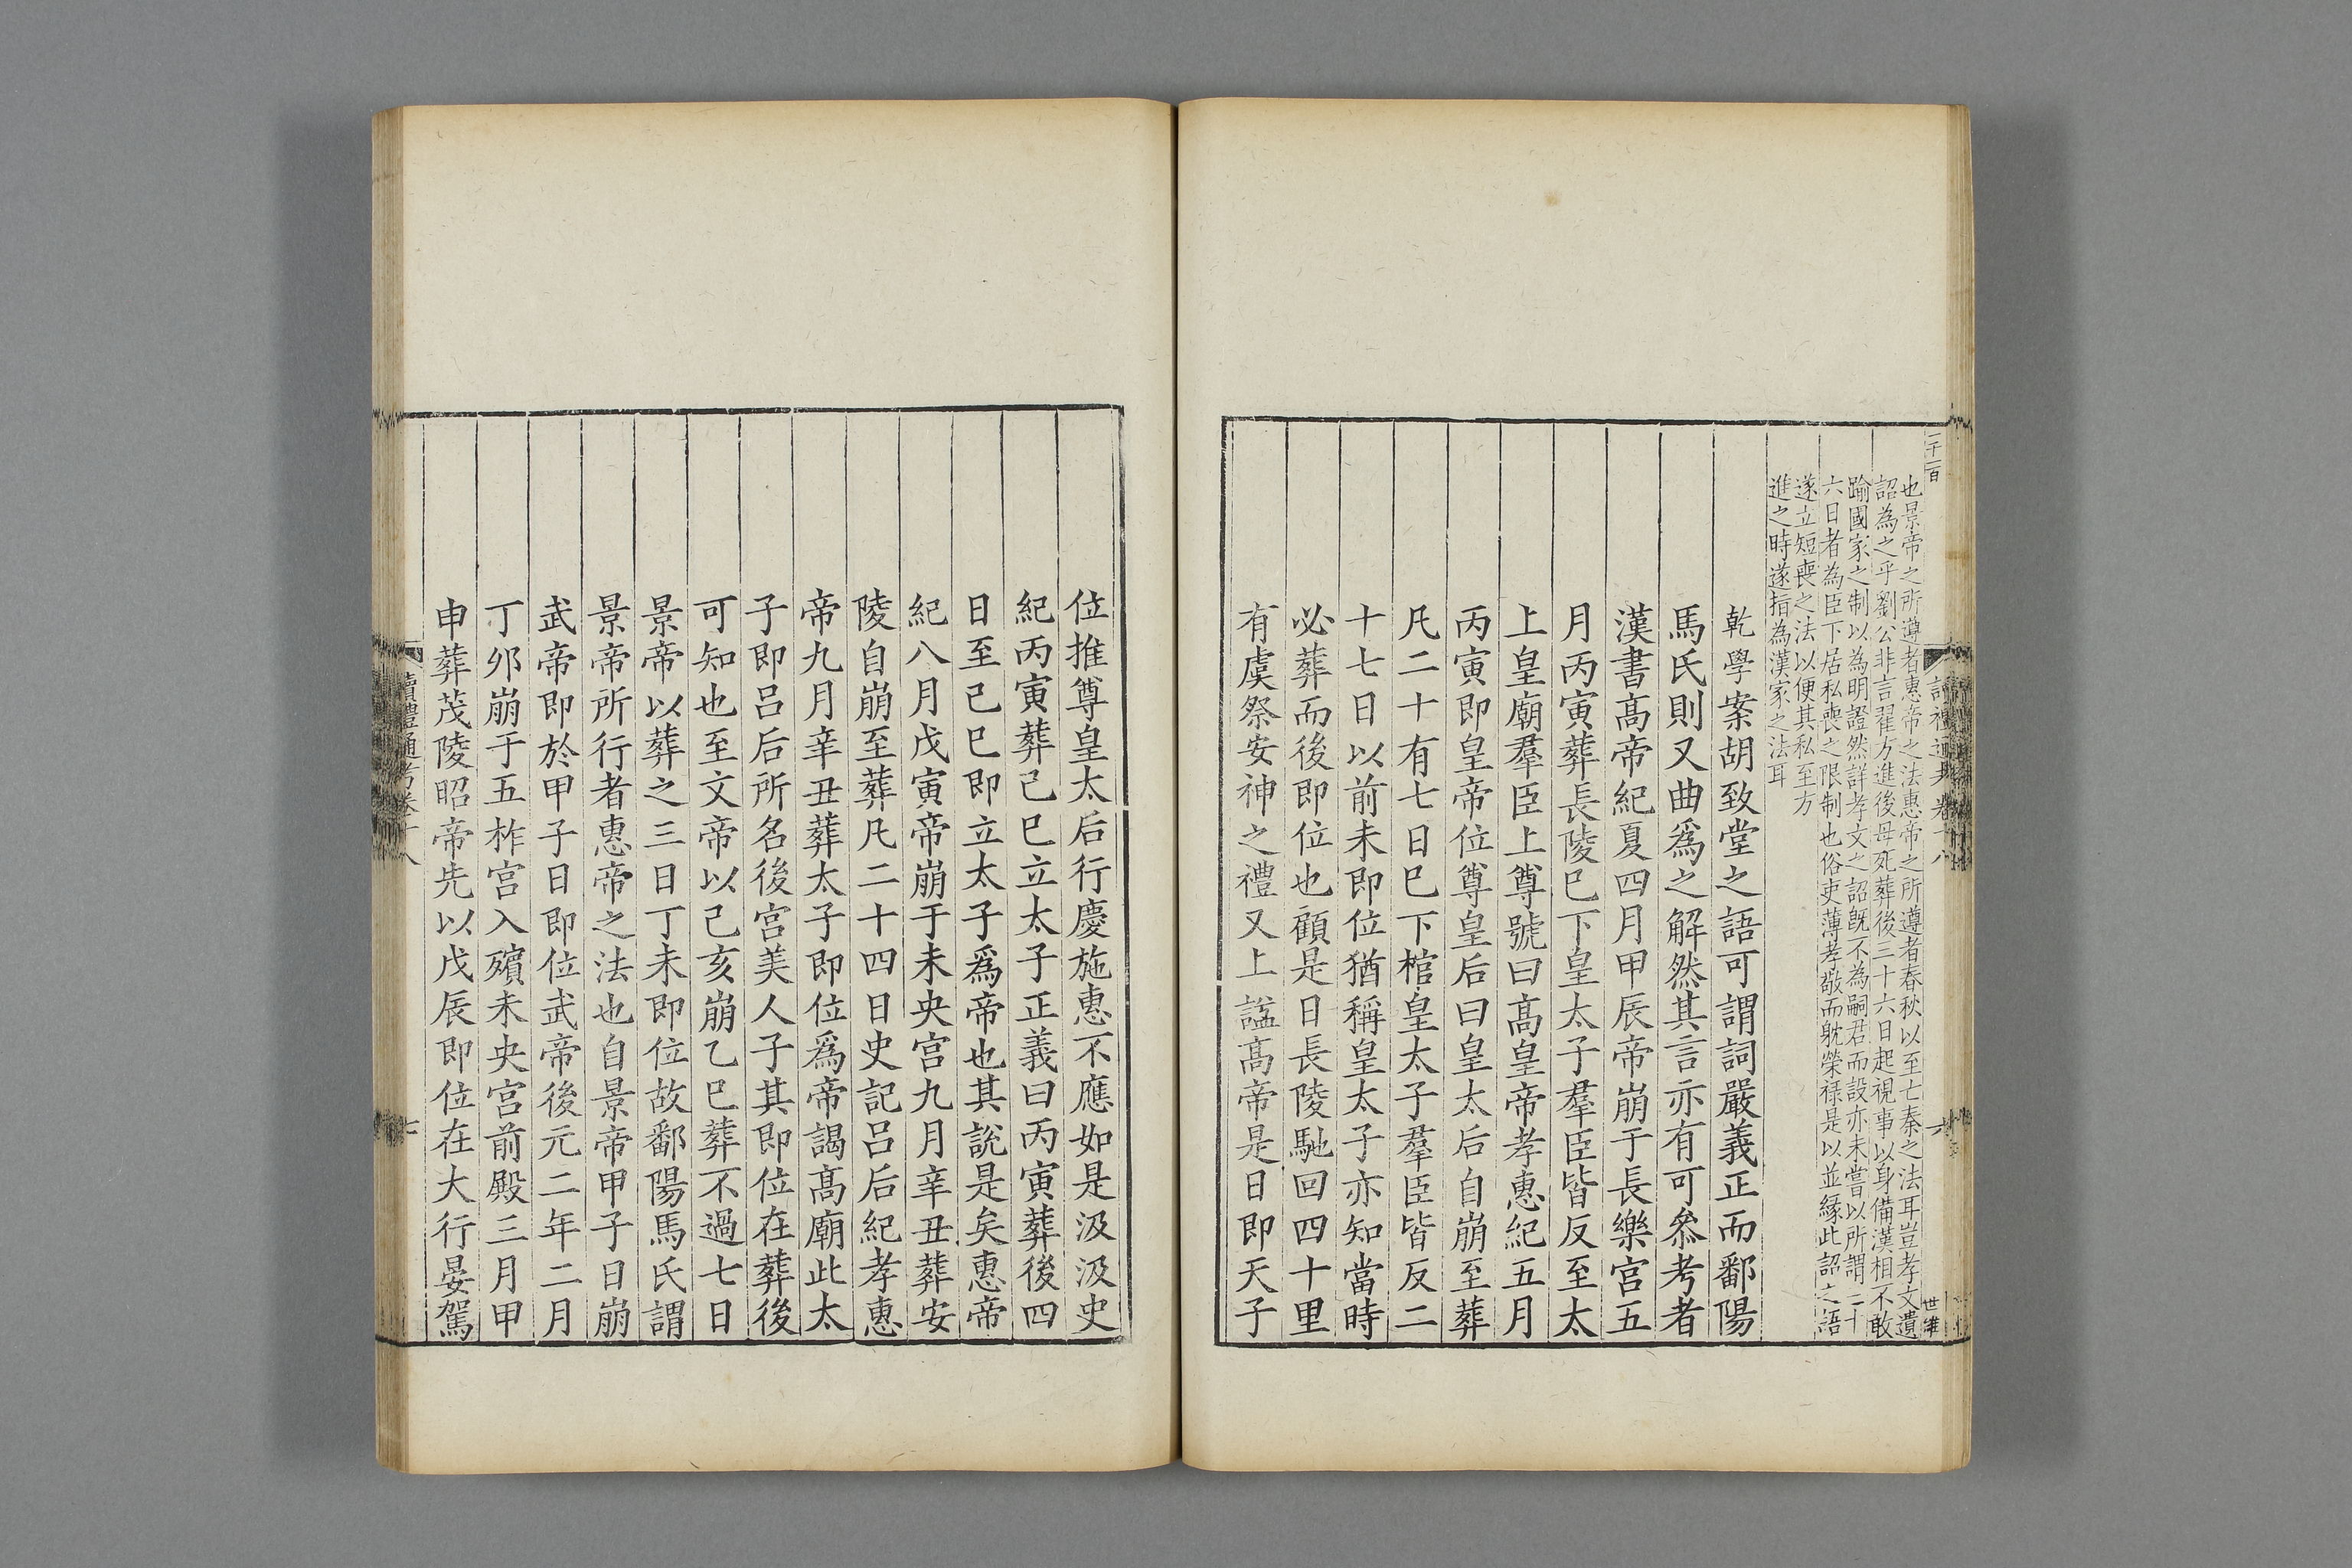 也景帝之所遵者惠帝之法惠帝之所遵者春秋以至七秦之法耳豈孝文遺
詔為之乎劉公非言翟方進後母死葬後三十六日起視事以身備漢相不敢
踰國家之制以為明證然詳孝文之詔旣不為嗣君而設亦未嘗以所謂三十
六日者為臣下居私喪之限制也俗吏薄孝敬而躭榮祿是以並緣此詔之語
遂立短喪之法以便其私至方
進之時遂指為漢家之法耳
乾學案胡致堂之語可謂詞嚴義正而鄱陽
馬氏則又曲爲之解然其言亦有可叅考者
漢書髙帝紀夏四月甲辰帝崩于長樂宮五
月丙寅葬長陵巳下皇太子羣臣皆反至太
上皇廟羣臣上尊號曰髙皇帝孝惠紀五月
丙寅即皇帝位尊皇后曰皇太后自崩至葬
凡二十有七日巳下棺皇太子羣臣皆反二
十七日以前未即位猶稱皇太子亦知當時
必葬而後即位也顧是日長陵馳回四十里
有虞祭安神之禮又上諡髙帝是日即天子
位推尊皇太后行慶施惠不應如是汲汲史
紀丙寅葬己巳立太子正義曰丙寅葬後四
日至己巳即立太子爲帝也其說是矣惠帝
紀八月戊寅帝崩于未央宮九月辛丑葬安
陵自崩至葬凡二十四日史記呂后紀孝惠
帝九月辛丑葬太子即位爲帝謁髙廟此太
子即呂后所名後宮美人子其即位在葬後
可知也至文帝以己亥崩乙巳葬不過七日
景帝以葬之三日丁未即位故鄱陽馬氏謂
景帝所行者惠帝之法也自景帝甲子日崩
武帝即於甲子日即位武帝後元二年二月
丁夘崩于五柞宮入殯未央宮前殿三月甲
申葬茂陵昭帝先以戊辰即位在大行晏駕
讀禮通考卷十八
七